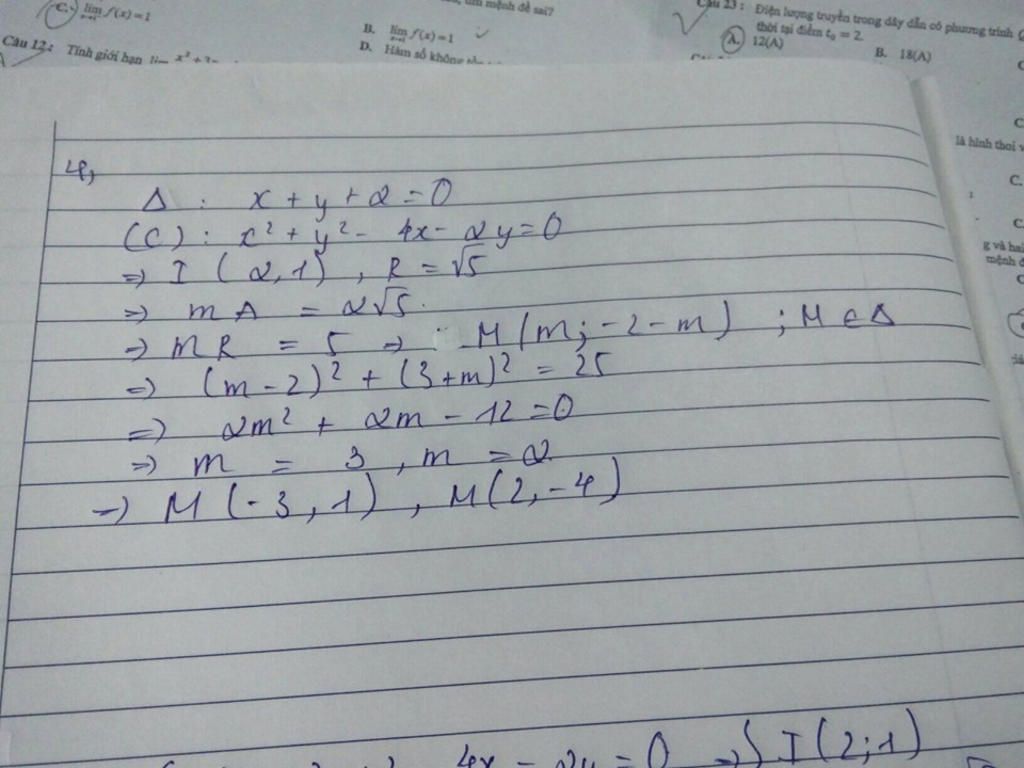 C. lim f(x)=1
mệnh đề sai?
B. lim f(x)=1
D. Hàm số không
Câu 12: Tính giới hạn lim
Câu 23: Điện lượng truyền trong dây dẫn có phương trình
thời tại điểm t₀ = 2.
A. 12(A)
B. 18(A)
là hình thoi
C.
C.
g và hai
mệnh đ
4,
Δ : x + y + 2 = 0
(C) : x² + y² - 4x - 2y = 0
=> I (2,1) , R = √5
=> mA = 2√5.
=> mR = 5 => M(m; -2 - m) ; M ∈ Δ
=> (m - 2)² + (3+m)² = 25
=> 2m² + 2m - 12 = 0
=> m = 3 , m = 2
=> M (-3, 1) , M(2, -4)
4x - 2y = 0 => I(2;1)